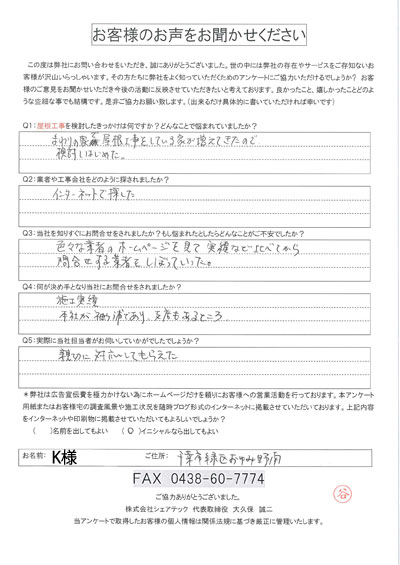 お客様のお声をお聞かせください
この度は弊社にお問い合わせをいただき、誠にありがとうございました。世の中には弊社の存在やサービスをご存知ないお
客様が沢山いらっしゃいます。その方たちに弊社をよく知っていただくためのアンケートにご協力いただけるでしょうか？ お客
様のご意見をお聞かせいただき今後の活動に反映させていただきたいと考えております。良かったこと、嬉しかったことどのよ
うな些細な事でも結構です。是非ご協力お願い致します。（出来るだけ具体的に書いていただければ幸いです）
Q1：屋根工事を検討したきっかけは何ですか？どんなことで悩まれていましたか？
まわりの家で屋根工事をしている家が増えてきたので
検討しはじめた。
Q2：業者や工事会社をどのように探されましたか？
インターネットで探した
Q3：当社を知りすぐにお問合せをされましたか？もし悩まれたとしたらどんなことがご不安でしたか？
色々な業者のホームページを見て実績など比べてから
問合せする業者をしぼっていった。
Q4：何が決め手となり当社にお問合せをされましたか？
施工実績
本社が袖ヶ浦であり、支店もあるところ
Q5：実際に当社担当者がお伺いしていかがでしたでしょうか？
親切に対応してもらえた
＊弊社は広告宣伝費を極力かけない為にホームページだけを頼りにお客様への営業活動を行っております。本アンケート
用紙またはお客様宅の調査風景や施工状況を随時ブログ形式のインターネットに掲載させていただいております。上記内容
をインターネットや印刷物に掲載させていただいてもよろしいでしょうか？
（　）名前を出してもよい （○）イニシャルなら出してもよい
お名前： K様 ご住所： 千葉市緑区おゆみ野南
FAX 0438-60-7774
ご協力ありがとうございました。
株式会社シェアテック 代表取締役 大久保 誠二
当アンケートで取得したお客様の個人情報は関係法規に基づき厳正に管理いたします。